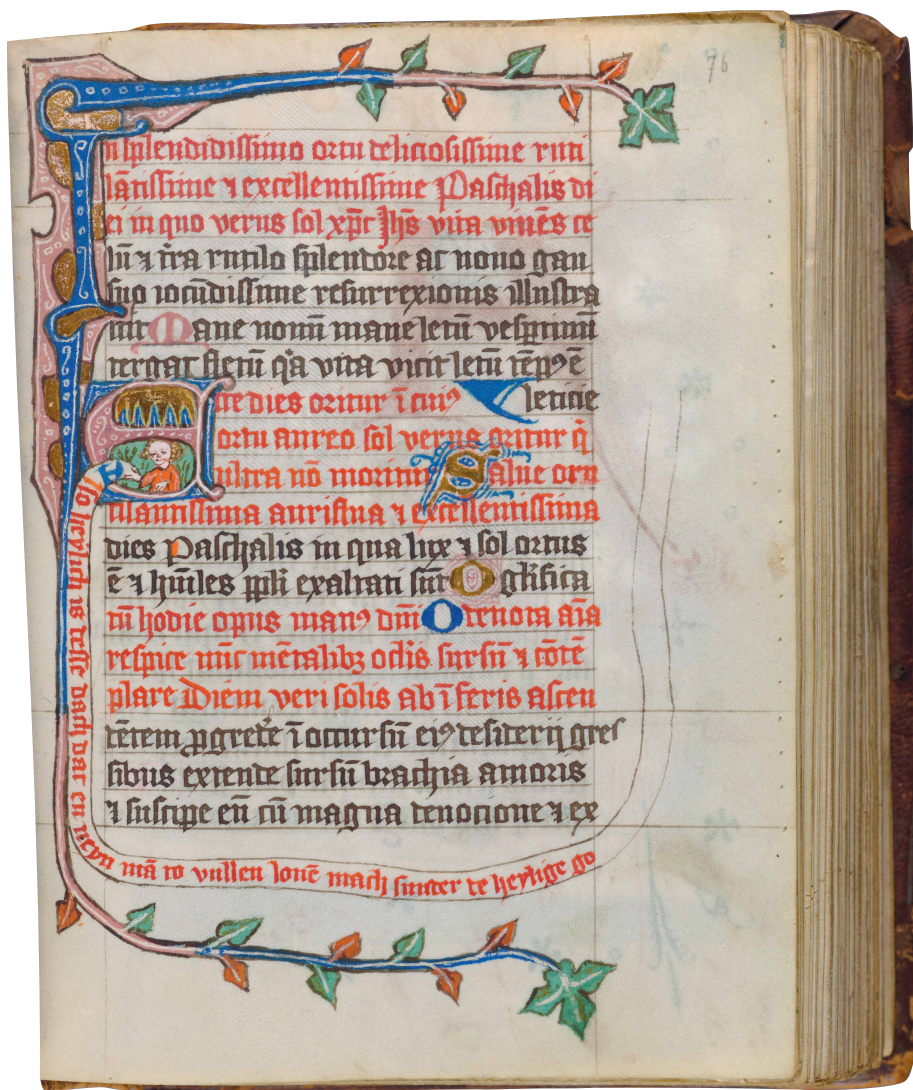 76
In splendidissimo ortu deliciosissime ruti
lātissime ⁊ excellentissime Paschalis di
ei in quo verus sol xp̄c Jhs̄ vita viuēs ce
lū ⁊ t̄ra rutilo splendore ac nouo gau
dio iocūdissime resurrexionis illustra
uit Mane nouū mane letū vesp̄tinū
tergat fletū q̄a vita vicit letū tēpꝰ ē
leticie
Iste dies oritur ī cuiꝰ
ortu aureo sol verus oritur q̄
vltra nō moritur Salue oru
tilantissima auriflua ⁊ excellentissima
dies Paschalis in qua lux ⁊ sol ortus
ē ⁊ hūiles pp̄li exaltati sūt O gl̄ifica
tū hodie opus manꝰ dn̄i O deuota aīa
respice nūc mētalibꝫ oclīs sursū ⁊ cōtē
plare Diem veri solis ab īferis ascen
dētem ꝓgrede ī occursū eiꝰ desiderij gres
sibus extende sursū brachia amoris
⁊ suscipe eū cū magna deuocione ⁊ ex
so heylich is desse dach dat en neyn mā to vullen louē mach sunder de heylige go